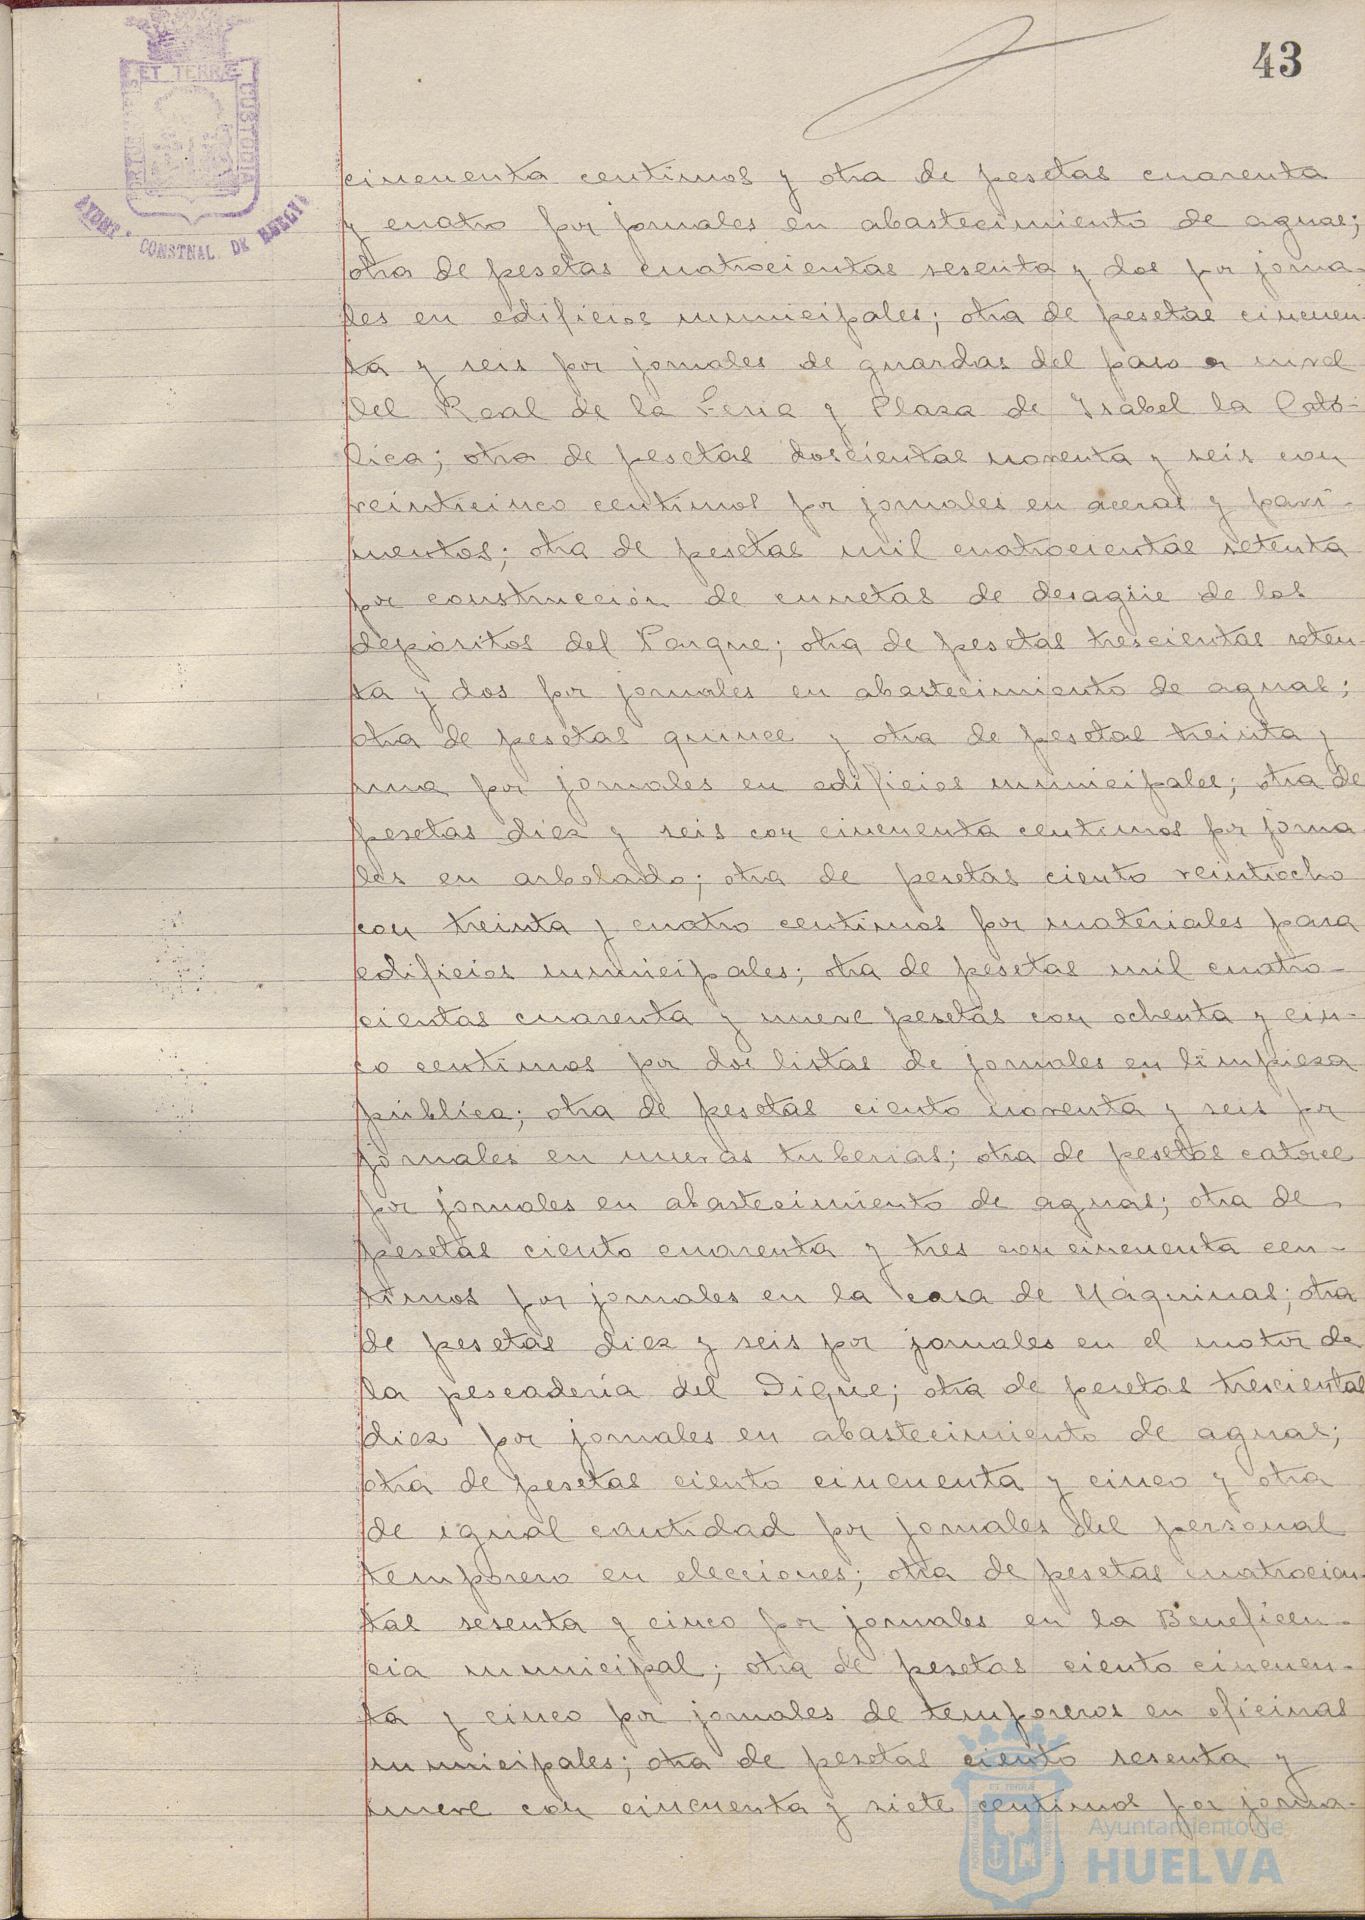 43
ET TERRÆ
CUSTODIA
AYUNT. CONSTNAL DE HUELVA
cincuenta centimos y otra de pesetas cuarenta
y cuatro por jornales en abastecimiento de aguas;
otra de pesetas cuatrocientas sesenta y dos por jorna-
les en edificios municipales; otra de pesetas cincuen-
ta y seis por jornales de guardas del paso a nivel
del Real de la Feria y Plaza de Isabel la Cató-
lica; otra de pesetas doscientas noventa y seis con
veinticinco centimos por jornales en aceras y pavi-
mentos; otra de pesetas mil cuatrocientas setenta
por construcción de cunetas de desagüe de los
depósitos del Parque; otra de pesetas trescientas seten-
ta y dos por jornales en abastecimiento de aguas;
otra de pesetas quince y otra de pesetas treinta y
una por jornales en edificios municipales; otra de
pesetas diez y seis con cincuenta centimos por jorna
les en arbolado; otra de pesetas ciento veintiocho
con treinta y cuatro centimos por materiales para
edificios municipales; otra de pesetas mil cuatro-
cientas cuarenta y nueve pesetas con ochenta y cin-
co centimos por dos listas de jornales en limpieza
pública; otra de pesetas ciento noventa y seis por
jornales en nuevas tuberias; otra de pesetas catorce
por jornales en abastecimiento de aguas; otra de
pesetas ciento cuarenta y tres con cincuenta cen-
timos por jornales en la casa de Máquinas; otra
de pesetas diez y seis por jornales en el motor de
la pescadería del Dique; otra de pesetas trescientas
diez por jornales en abastecimiento de aguas;
otra de pesetas ciento cincuenta y cinco y otra
de igual cantidad por jornales del personal
temporero en elecciones; otra de pesetas cuatrocien-
tas sesenta y cinco por jornales en la Beneficen-
cia municipal; otra de pesetas ciento cincuen-
ta y cinco por jornales de temporeros en oficinas
municipales; otra de pesetas ciento sesenta y
nueve con cincuenta y siete centimos por jorna-
Ayuntamiento de
HUELVA